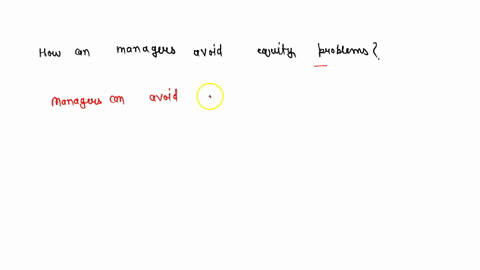 How can managers avoid equity problems?
Managers can avoid